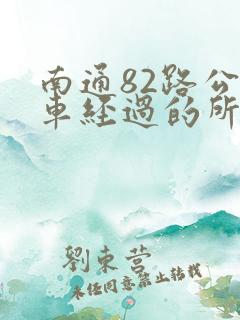 南通82路公
車經過的所
劉東營
未經同意禁止轉載